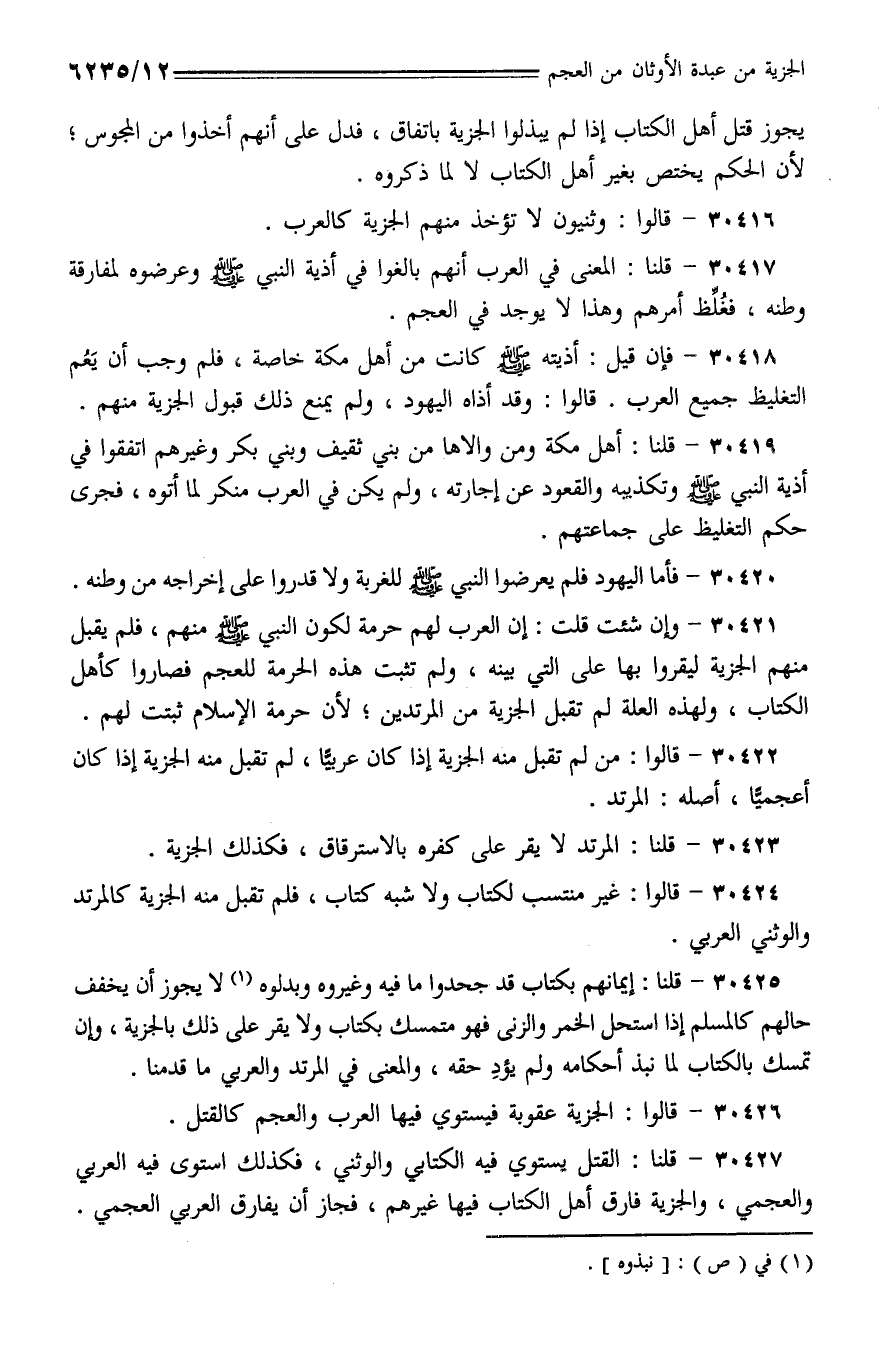 الجزية من عبدة الأوثان من العجم ٦٢٣٥/١٢
يجوز قتل أهل الكتاب إذا لم يبذلوا الجزية باتفاق ، فدل على أنهم أخذوا من المجوس ؛
لأن الحكم يختص بغير أهل الكتاب لا لما ذكروه .
٣٠٤١٦ - قالوا : وثنيون لا تؤخذ منهم الجزية كالعرب .
٣٠٤١٧ - قلنا : المعنى في العرب أنهم بالغوا في أذية النبي ﷺ وعرضوه لمفارقة
وطنه ، فغُلِّظ أمرهم وهذا لا يوجد في العجم .
٣٠٤١٨ - فإن قيل : أذيته ﷺ كانت من أهل مكة خاصة ، فلم وجب أن يَعُم
التغليظ جميع العرب . قالوا : وقد أذاه اليهود ، ولم يمنع ذلك قبول الجزية منهم .
٣٠٤١٩ - قلنا : أهل مكة ومن والاها من بني ثقيف وبني بكر وغيرهم اتفقوا في
أذية النبي ﷺ وتكذيبه والقعود عن إجارته ، ولم يكن في العرب منكر لما أتوه ، فجرى
حكم التغليظ على جماعتهم .
٣٠٤٢٠ - فأما اليهود فلم يعرضوا النبي ﷺ للغربة ولا قدروا على إخراجه من وطنه .
٣٠٤٢١ - وإن شئت قلت : إن العرب لهم حرمة لكون النبي ﷺ منهم ، فلم يقبل
منهم الجزية ليقروا بها على التي بينه ، ولم تثبت هذه الحرمة للعجم فصاروا كأهل
الكتاب ، ولهذه العلة لم تقبل الجزية من المرتدين ؛ لأن حرمة الإسلام ثبتت لهم .
٣٠٤٢٢ - قالوا : من لم تقبل منه الجزية إذا كان عربيًّا ، لم تقبل منه الجزية إذا كان
أعجميًّا ، أصله : المرتد .
٣٠٤٢٣ - قلنا : المرتد لا يقر على كفره بالاسترقاق ، فكذلك الجزية .
٣٠٤٢٤ - قالوا : غير منتسب لكتاب ولا شبه كتاب ، فلم تقبل منه الجزية كالمرتد
والوثني العربي .
٣٠٤٢٥ - قلنا : إيمانهم بكتاب قد جحدوا ما فيه وغيروه وبدلوه (١) لا يجوز أن يخفف
حالهم كالمسلم إذا استحل الخمر والزنى فهو متمسك بكتاب ولا يقر على ذلك بالجزية ، وإن
تمسك بالكتاب لما نبذ أحكامه ولم يؤدِ حقه ، والمعنى في المرتد والعربي ما قدمنا .
٣٠٤٢٦ - قالوا : الجزية عقوبة فيستوي فيها العرب والعجم كالقتل .
٣٠٤٢٧ - قلنا : القتل يستوي فيه الكتابي والوثني ، فكذلك استوى فيه العربي
والعجمي ، والجزية فارق أهل الكتاب فيها غيرهم ، فجاز أن يفارق العربي العجمي .
(١) في ( ص ) : [ نبذوه ] .